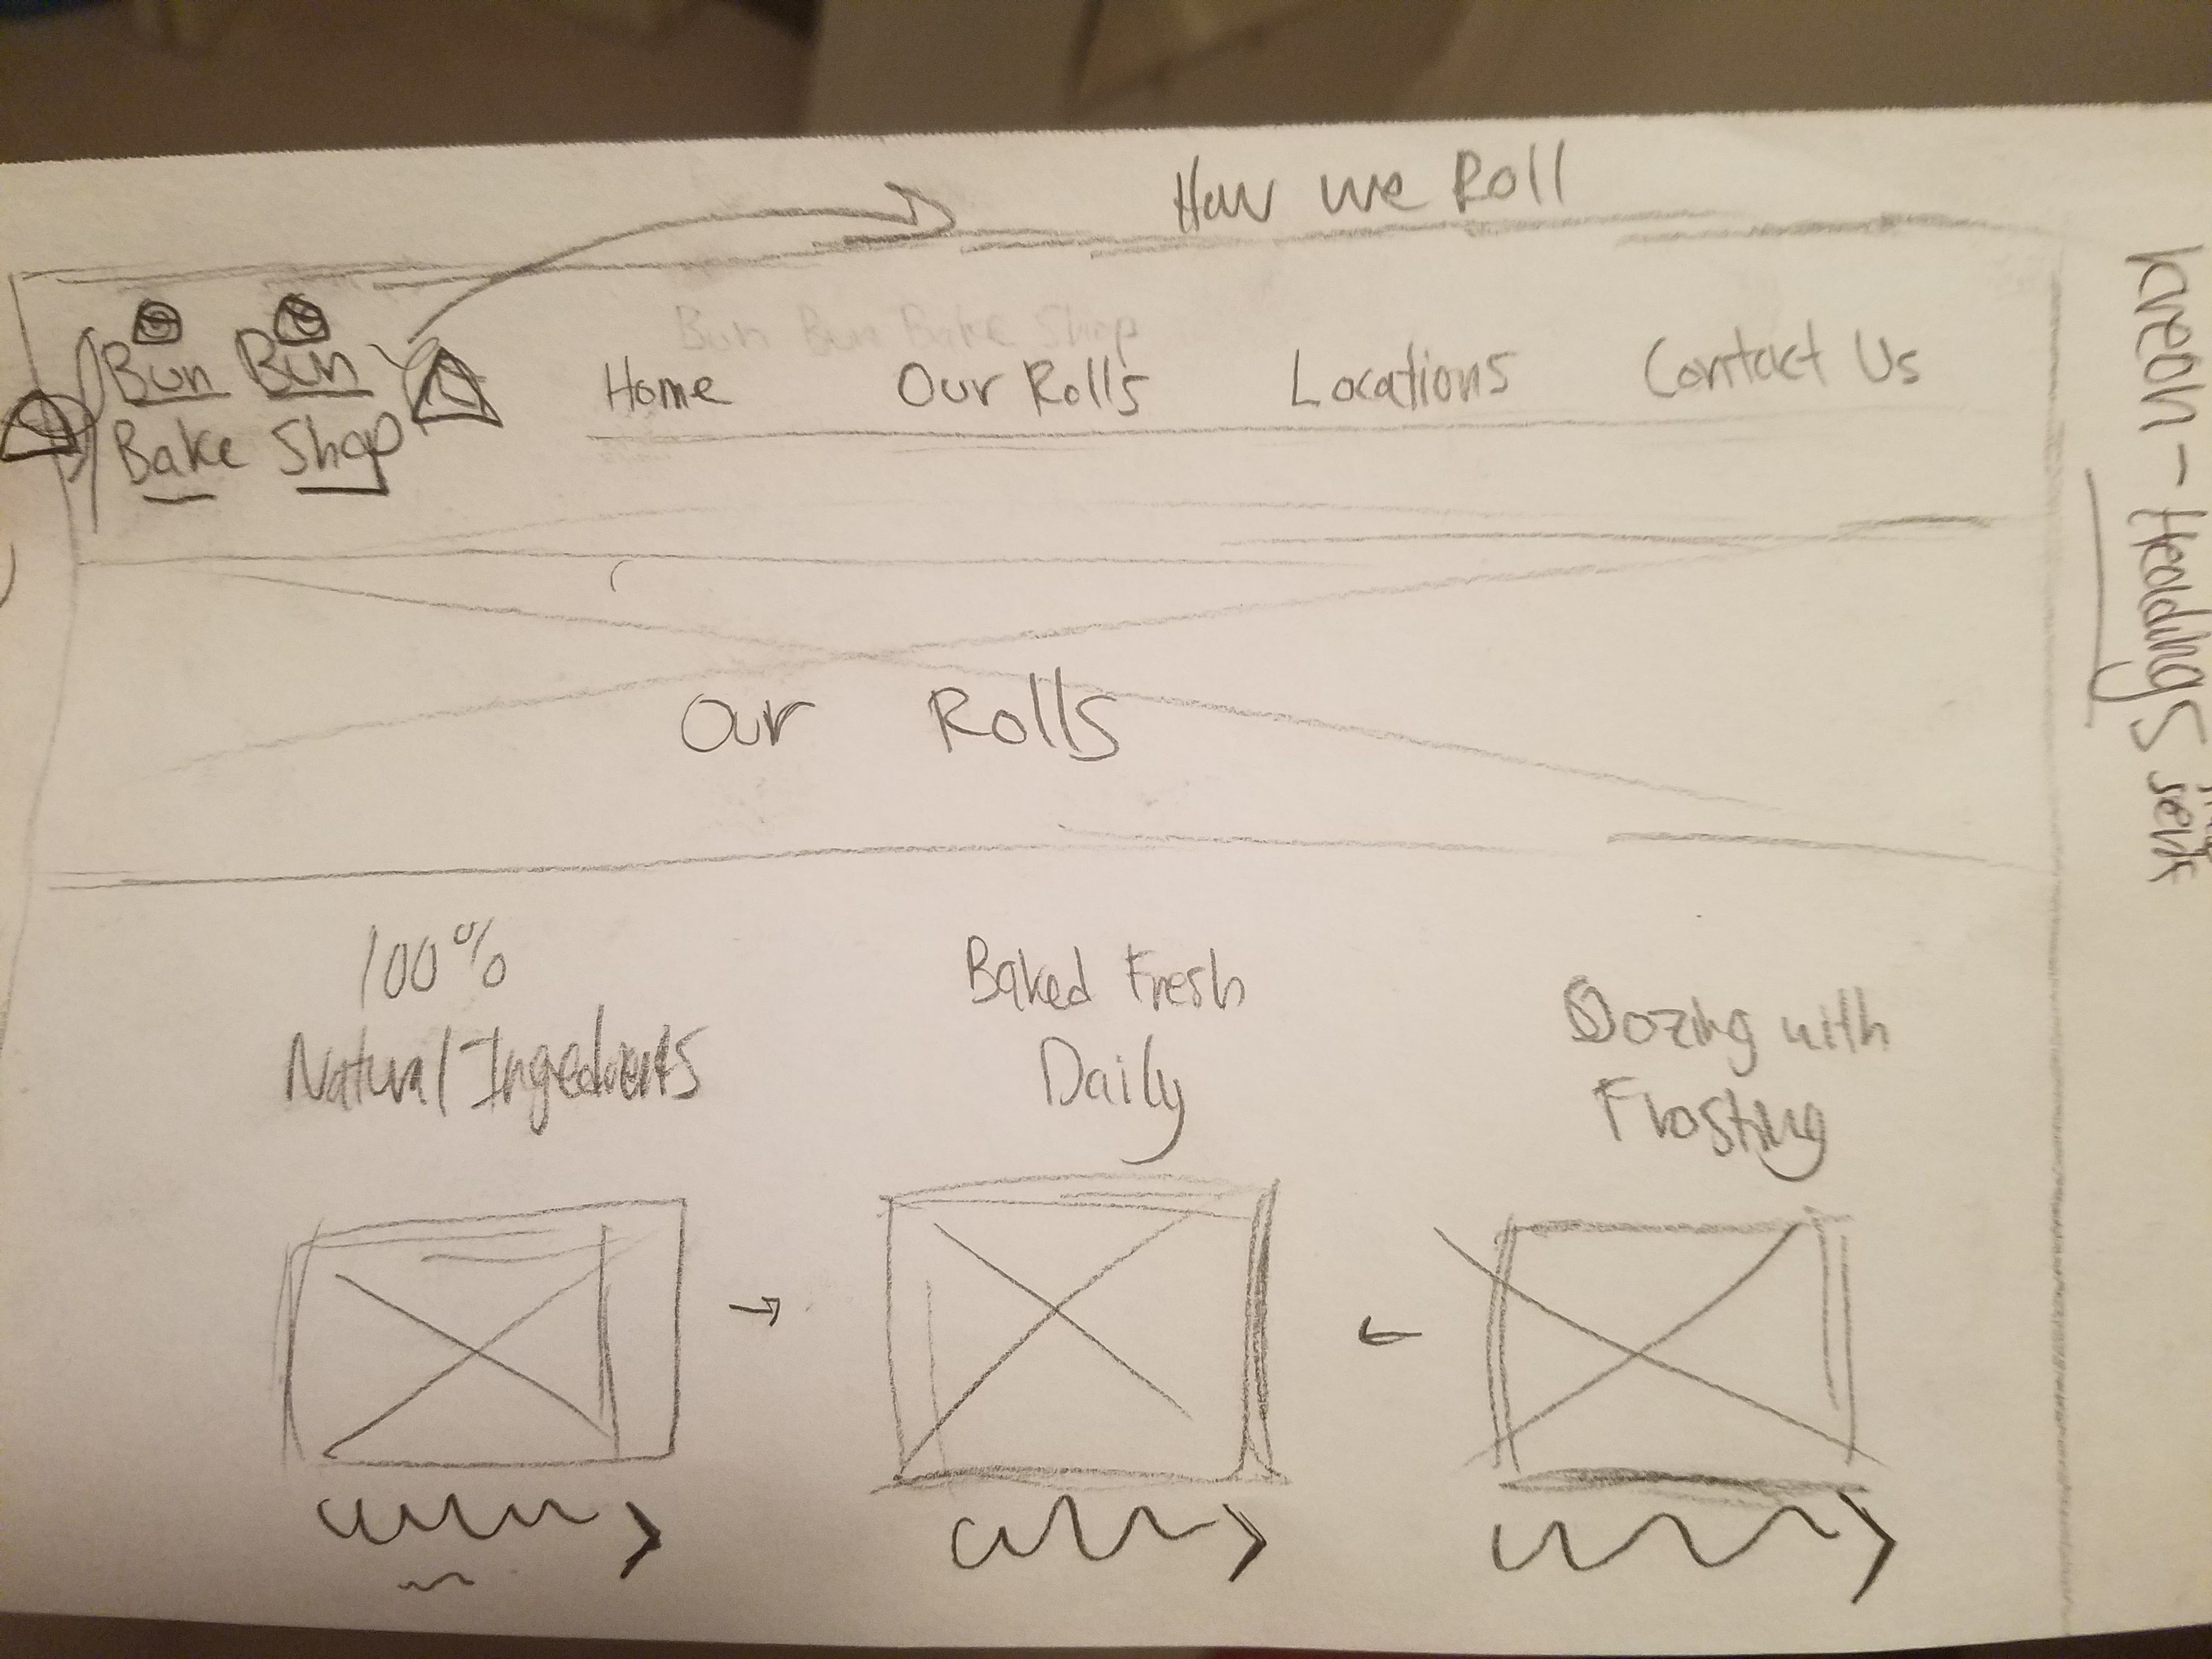 How we Roll
Bun Bun Bake Shop
Bun Bun
Bake Shop
Home Our Rolls Locations Contact Us
Our Rolls
100%
Natural Ingedients
Baked Fresh
Daily
Oozing with
Frosting
kreon - Headings